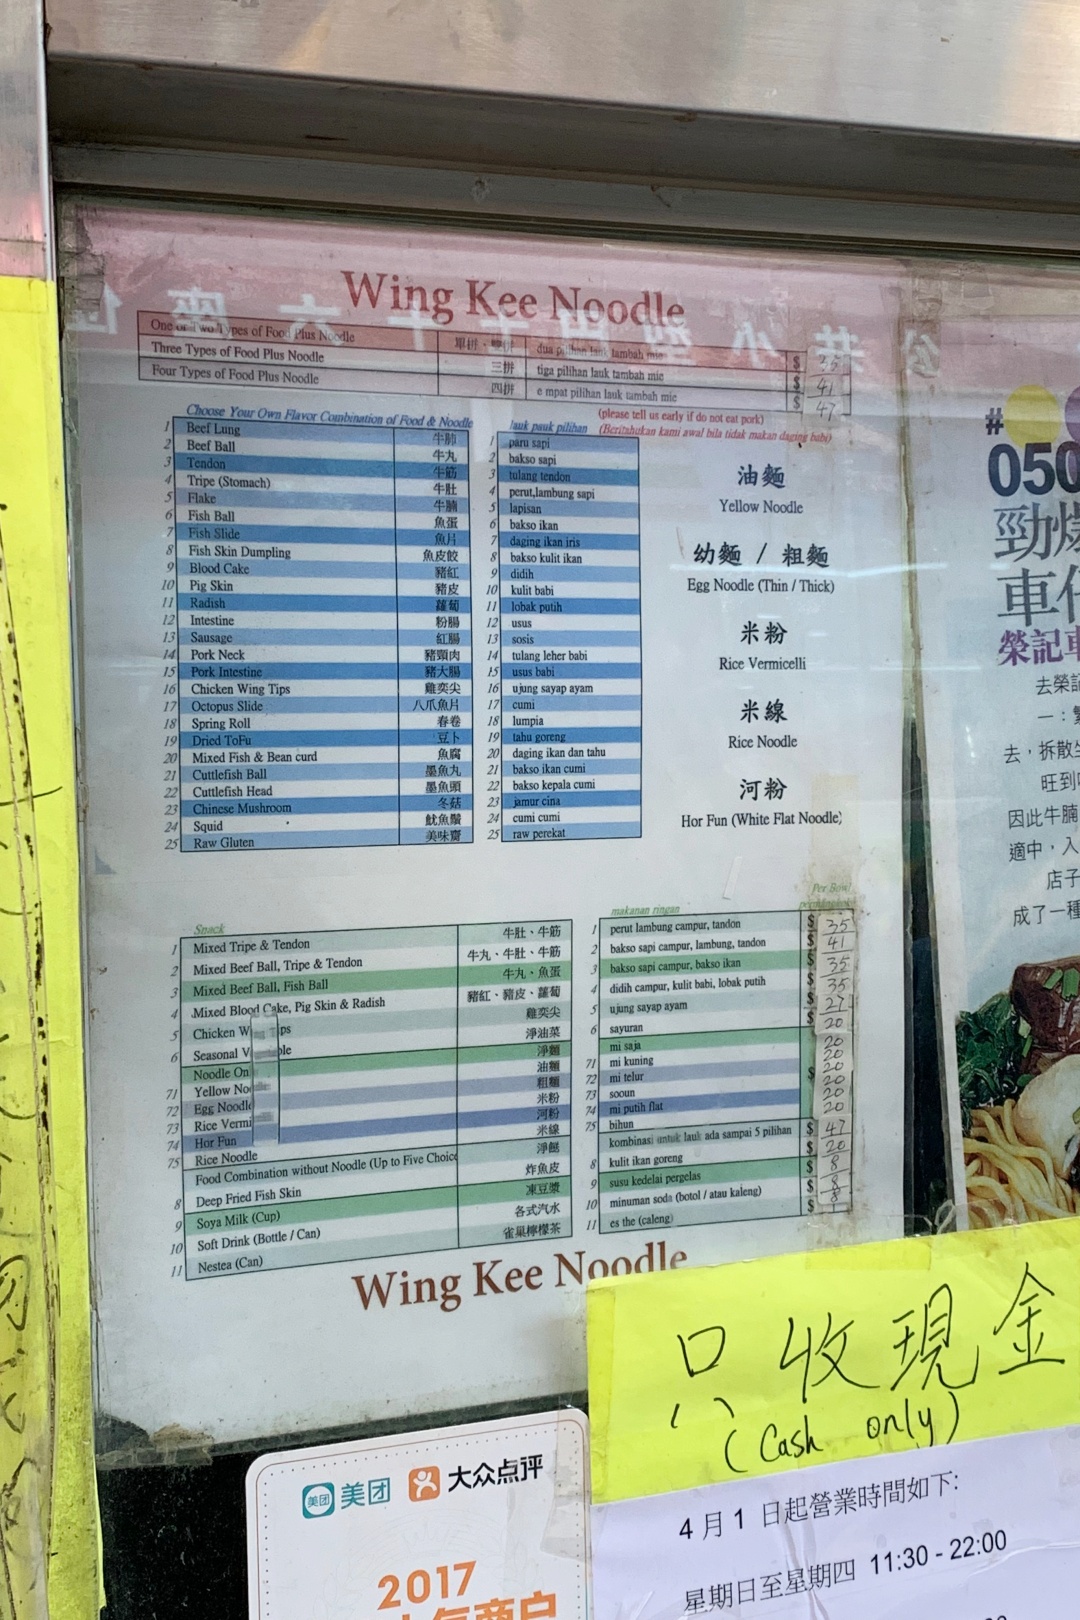 Wing Kee Noodle
One or Two Types of Food Plus Noodle 單拼、雙拼 dua pilihan lauk tambah mie $ 35
Three Types of Food Plus Noodle 三拼 tiga pilihan lauk tambah mie $ 41
Four Types of Food Plus Noodle 四拼 e mpat pilihan lauk tambah mie $ 47
(please tell us early if do not eat pork)
Choose Your Own Flavor Combination of Food & Noodle lauk pauk pilihan (Beritahukan kami awal bila tidak makan daging babi)
1 Beef Lung 牛肺 1 paru sapi
2 Beef Ball 牛丸 2 bakso sapi
3 Tendon 牛筋 3 tulang tendon
4 Tripe (Stomach) 牛肚 4 perut,lambung sapi
5 Flake 牛腩 5 lapisan
6 Fish Ball 魚蛋 6 bakso ikan
7 Fish Slide 魚片 7 daging ikan iris
8 Fish Skin Dumpling 魚皮餃 8 bakso kulit ikan
9 Blood Cake 豬紅 9 didih
10 Pig Skin 豬皮 10 kulit babi
11 Radish 蘿蔔 11 lobak putih
12 Intestine 粉腸 12 usus
13 Sausage 紅腸 13 sosis
14 Pork Neck 豬頸肉 14 tulang leher babi
15 Pork Intestine 豬大腸 15 usus babi
16 Chicken Wing Tips 雞奕尖 16 ujung sayap ayam
17 Octopus Slide 八爪魚片 17 cumi
18 Spring Roll 春卷 18 lumpia
19 Dried ToFu 豆卜 19 tahu goreng
20 Mixed Fish & Bean curd 魚腐 20 daging ikan dan tahu
21 Cuttlefish Ball 墨魚丸 21 bakso ikan cumi
22 Cuttlefish Head 墨魚頭 22 bakso kepala cumi
23 Chinese Mushroom 冬菇 23 jamur cina
24 Squid 魷魚鬚 24 cumi cumi
25 Raw Gluten 美味齋 25 raw perekat
油麵
Yellow Noodle
幼麵 / 粗麵
Egg Noodle (Thin / Thick)
米粉
Rice Vermicelli
米線
Rice Noodle
河粉
Hor Fun (White Flat Noodle)
Snack makanan ringan Per Bowl
1 Mixed Tripe & Tendon 牛肚、牛筋 1 perut lambung campur, tandon $ 35
2 Mixed Beef Ball, Tripe & Tendon 牛丸、牛肚、牛筋 2 bakso sapi campur, lambung, tandon $ 41
3 Mixed Beef Ball, Fish Ball 牛丸、魚蛋 3 bakso sapi campur, bakso ikan $ 35
4 Mixed Blood Cake, Pig Skin & Radish 豬紅、豬皮、蘿蔔 4 didih campur, kulit babi, lobak putih $ 35
5 Chicken W ps 雞奕尖 5 ujung sayap ayam $ 27
6 Seasonal V ble 淨油菜 6 sayuran $ 20
Noodle On 淨麵 mi saja 20
71 Yellow No 油麵 71 mi kuning 20
72 Egg Noodle 粗麵 72 mi telur $ 20
73 Rice Vermi 米粉 73 sooun 20
74 Hor Fun 河粉 74 mi putih flat 20
75 Rice Noodle 米線 75 bihun 20
Food Combination without Noodle (Up to Five Choic 淨餸 kombinasi untuk lauk ada sampai 5 pilihan $ 47
8 Deep Fried Fish Skin 炸魚皮 8 kulit ikan goreng $ 20
9 Soya Milk (Cup) 凍豆漿 9 susu kedelai pergelas $ 8
10 Soft Drink (Bottle / Can) 各式汽水 10 minuman soda (botol / atau kaleng) $ 8
11 Nestea (Can) 雀巢檸檬茶 11 es the (caleng) $ 8
Wing Kee Noodle
#
050
勁爆
車仔
榮記車
去榮記
去，拆散
旺到
因此牛腩
適中，入
店子
成了一種
只收現金
(Cash only)
4月1日起營業時間如下:
星期日至星期四 11:30 - 22:00
美团 美团 大众点评
2017